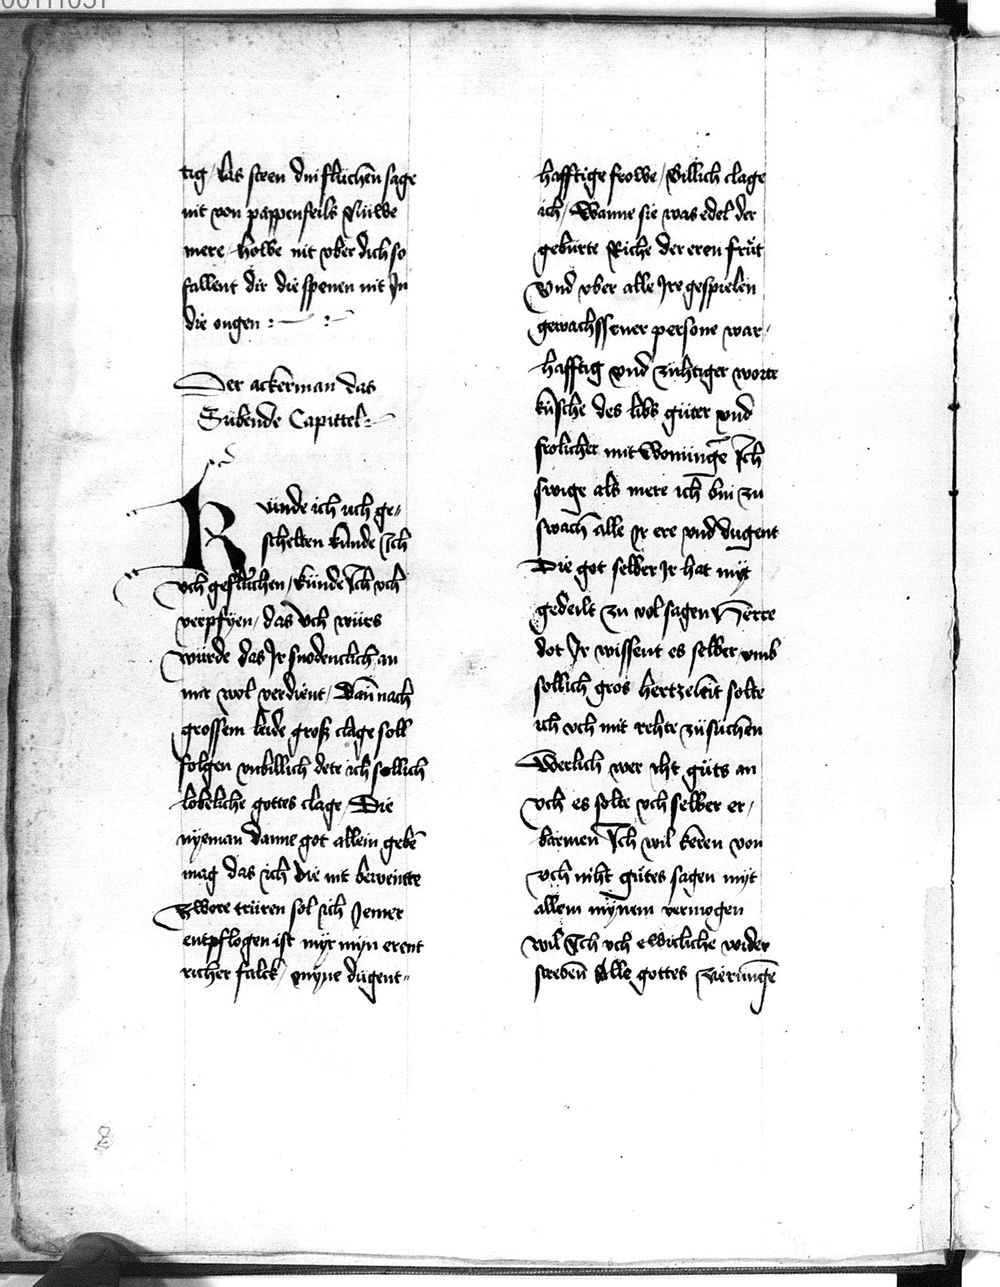 00111051
tig / las steen din fluchen sage
nit von pappenfeils Nuwe
mere / howe nit vber dich so
fallent dir die spenen nit Jn
die ougen :~ :~
Der ackerman das
Subende Capittel :~
Kunde ich uch ge„
schelten kunde Ich
vch gefluchen / kunde Ich vch
verpfyen / das vch wurs
wurde das Jr snodenclich an
mir wol verdient / Wan nach
grossem leide groß clage soll
folgen vnbillich dete ich sollich
lobeliche gottes clage / Die
nyeman danne got allein gebē
mag das ich die nit beweinte
Zwore truren sol ich Jemer
entpflogen ist myr myn erent
richer falck / myne dugent„
hafftige frowe / Billich clage
ich / Wanne sie was edel der
geburte Riche der eren frut
Vnd vber alle Jre gespielen
gewachssener persone war /
hafftig vnd zuhtiger worte
kusche des libs guter vnd
frolicher mit Wonunge Ich
swige als mere ich bin zu
swach alle Jr ere vnd dugent
Die got selber Jr hat myt
gedeilt zu vol sagen Herre
dot Jr wissent es selber vmb
sollich gros hertzeleit solte
ich vch mit rehte zusuchen
Werlich wer iht guts an
vch es solte vch selber er /
barmen Ich wil keren von
vch niht gutes sagen myt
allem mynem vermogen
wil Ich vch ewicliche wider
streben Alle gottes zierunge